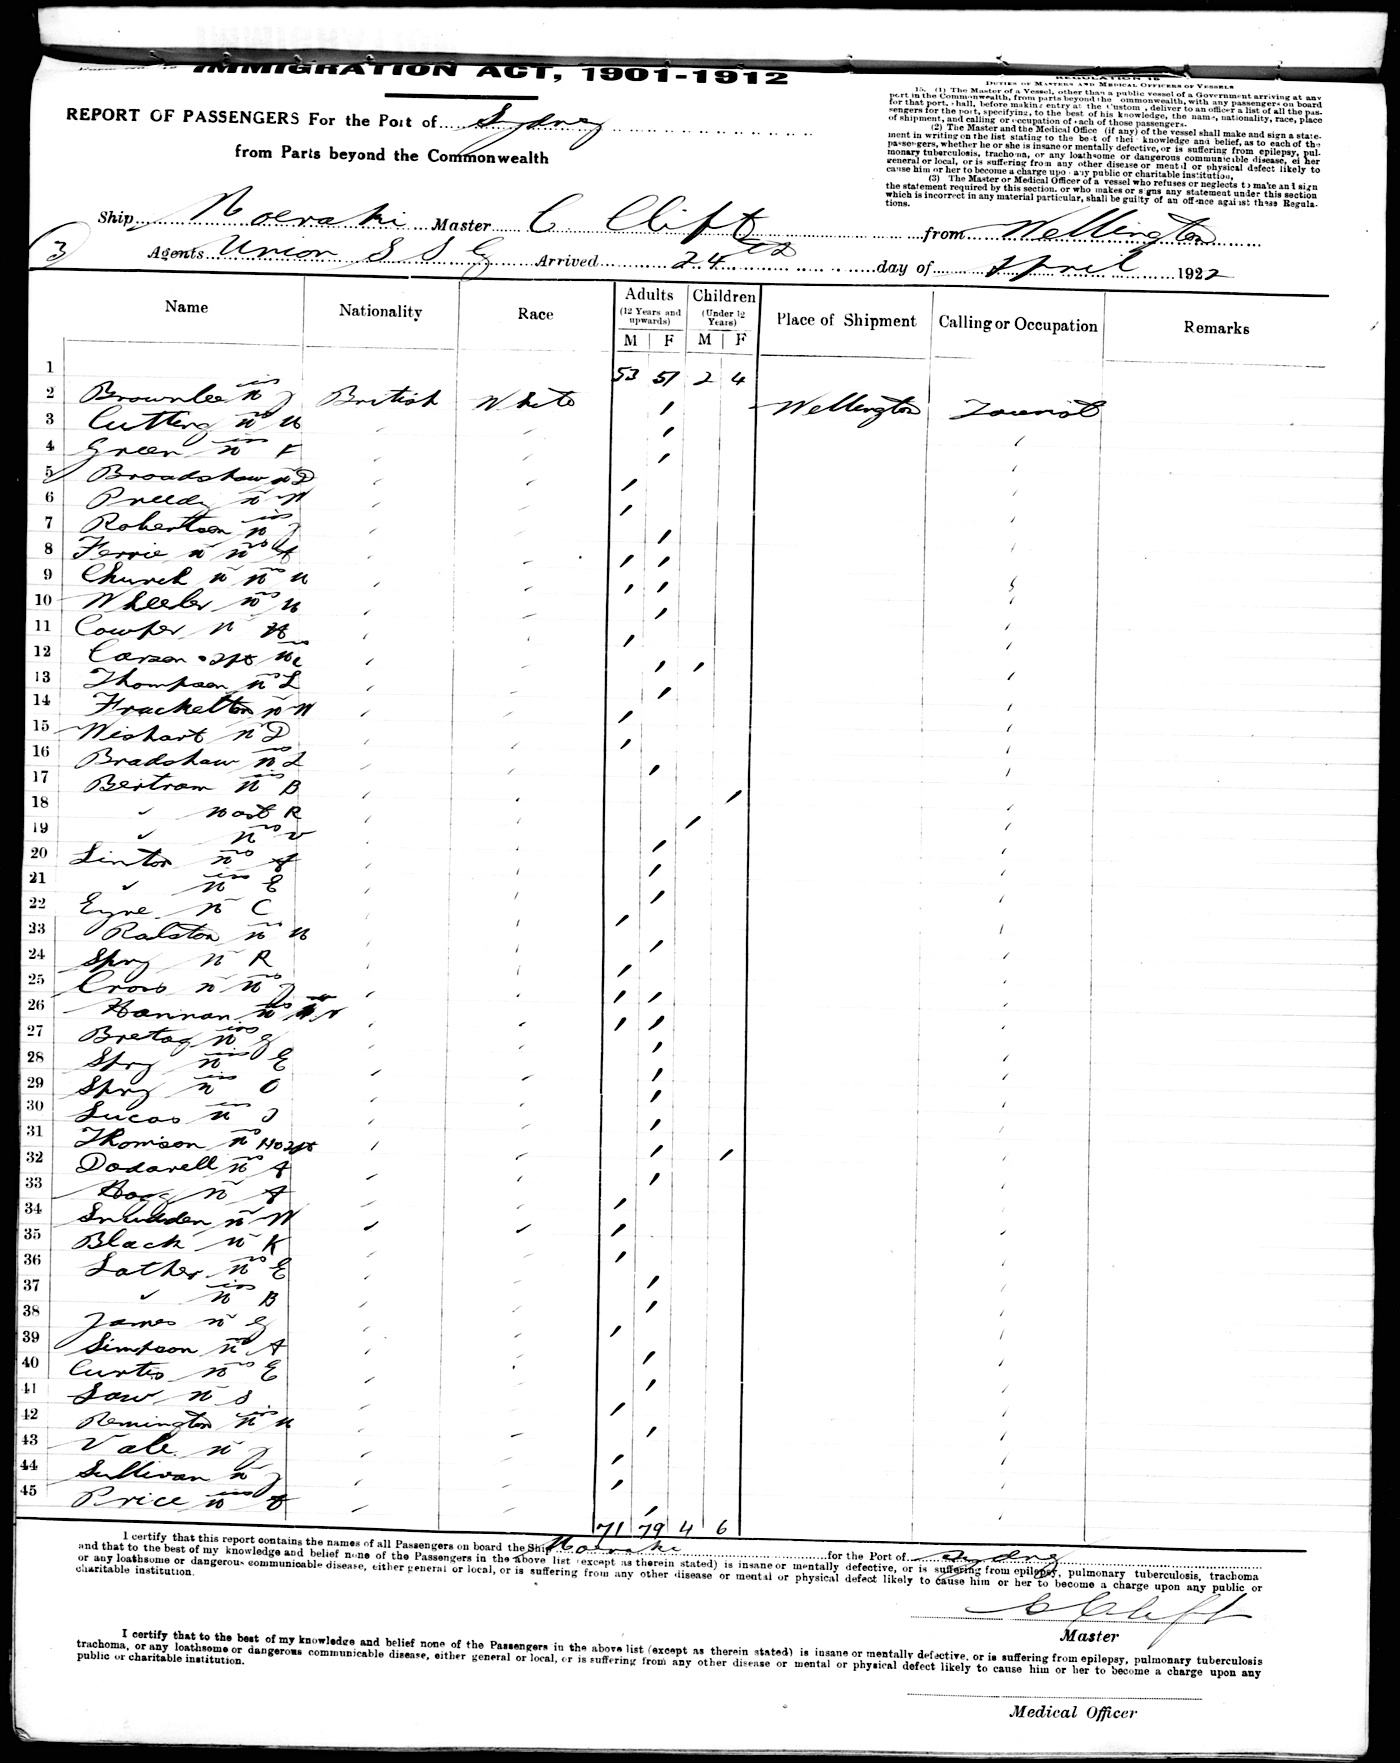 IMMIGRATION ACT, 1901-1912
REPORT OF PASSENGERS For the Port of Sydney
from Parts beyond the Commonwealth
REGULATION 15
DUTIES OF MASTERS AND MEDICAL OFFICERS OF VESSELS
15. (1) The Master of a Vessel, other than a public vessel of a Government arriving at any
port in the Commonwealth, from parts beyond the Commonwealth, with any passengers on board
for that port, shall, before making entry at the Custom, deliver to an officer a list of all the pas-
sengers for the port, specifying, to the best of his knowledge, the name, nationality, race, place
of shipment, and calling or occupation of each of those passengers.
(2) The Master and the Medical Office (if any) of the vessel shall make and sign a state-
ment in writing on the list stating to the best of their knowledge and belief, as to each of the
passengers, whether he or she is insane or mentally defective, or is suffering from epilepsy, pul-
monary tuberculosis, trachoma, or any loathsome or dangerous communicable disease, either
general or local, or is suffering from any other disease or mental or physical defect likely to
cause him or her to become a charge upon any public or charitable institution,
(3) The Master or Medical Officer of a vessel who refuses or neglects to make and sign
the statement required by this section, or who makes or signs any statement under this section
which is incorrect in any material particular, shall be guilty of an offence against these Regula-
tions.
Ship Moeraki Master C. Clift from Wellington
3 Agents Union S S Co Arrived 24th day of April 1922
Name Nationality Race Adults (12 Years and upwards) M F Children (Under 12 Years) M F Place of Shipment Calling or Occupation Remarks
1 53 51 2 4
2 Brownlee Miss J British White Wellington Tourist
3 Cutting Mrs M
4 Green Miss F
5 Broadshaw Mr D
6 Preedy Mr W
7 Robertson Miss J
8 Ferrie Mr Mrs A
9 Church Mr Mrs M
10 Wheeler Mrs M
11 Cowper Mr H
12 Carson & Inft Mrs C
13 Thompson Mrs L
14 Frackelton Mr W
15 Wishart Mr D
16 Bradshaw Mrs L
17 Bertram Miss B
18 " Mast R
19 " Mrs V
20 Linton Mrs A
21 " Miss E
22 Eyre Mr C
23 Ralston Mrs M
24 Spry Mr R
25 Cross Mr Mrs J
26 Hannan Mrs
27 Bretag Miss G
28 Spry Miss E
29 Spry Miss O
30 Lucas Miss J
31 Thomson Mrs H & Inft
32 Mrs A
33 Hogg Mr A
34 Snudden Mr W
35 Black Mr K
36 Lather Mrs E
37 " Miss B
38 James Mr G
39 Simpson Mrs A
40 Curtis Mrs E
41 Law Mr S
42 Remington Miss M
43 Vale Mr J
44 Sullivan Mr J
45 Price Miss A
71 79 4 6
I certify that this report contains the names of all Passengers on board the Ship Moeraki for the Port of Sydney
and that to the best of my knowledge and belief none of the Passengers in the above list (except as therein stated) is insane or mentally defective, or is suffering from epilepsy, pulmonary tuberculosis, trachoma
or any loathsome or dangerous communicable disease, either general or local, or is suffering from any other disease or mental or physical defect likely to cause him or her to become a charge upon any public or
charitable institution.
C Clift
Master
I certify that to the best of my knowledge and belief none of the Passengers in the above list (except as therein stated) is insane or mentally defective, or is suffering from epilepsy, pulmonary tuberculosis
trachoma, or any loathsome or dangerous communicable disease, either general or local, or is suffering from any other disease or mental or physical defect likely to cause him or her to become a charge upon any
public or charitable institution.
Medical Officer